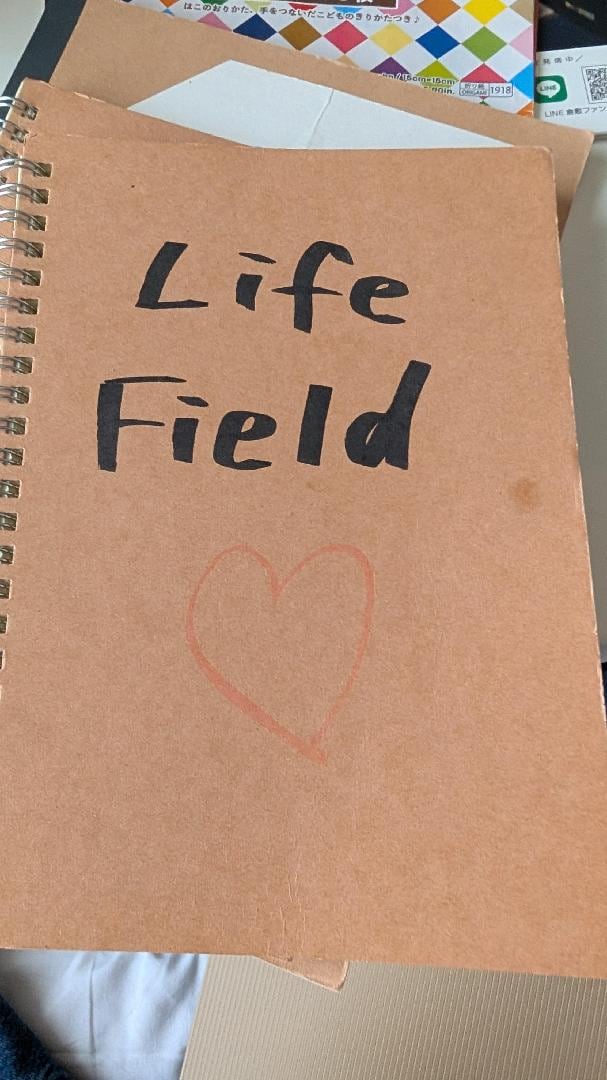 はこのおりかた、手をつないだこどものきりかたつき♪
15cm×15cm
折り紙
ORIGAMI
1918
発信中／
LINE
LINE 倉敷ファン
Life
Field